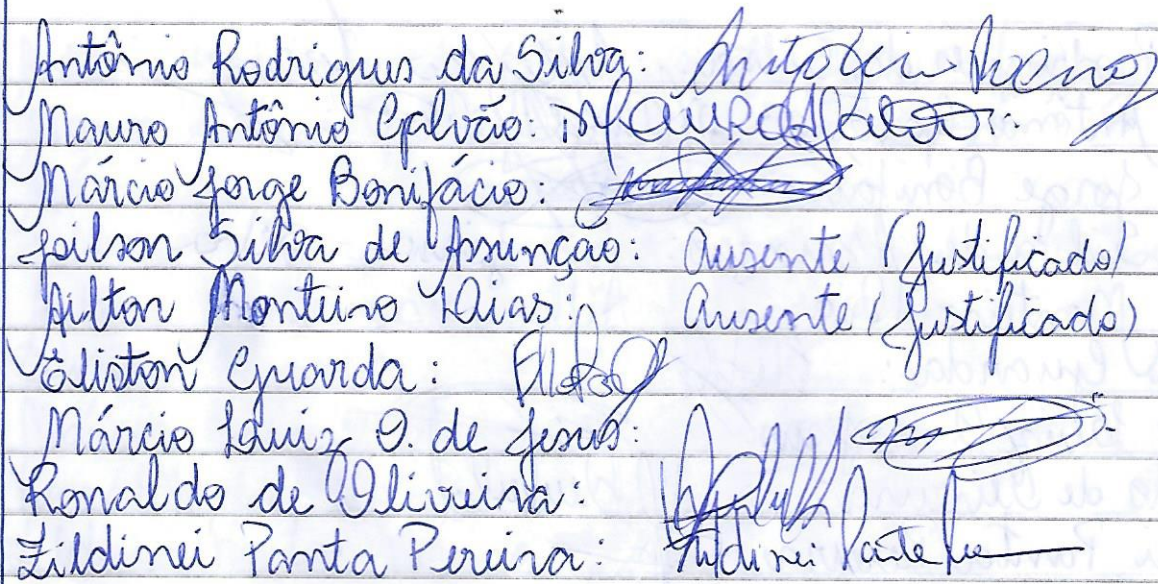 Antônio Rodrigues da Silva:
Mauro Antônio Galvão:
Márcio Jorge Bonifácio:
Joilson Silva de Assunção: Ausente (Justificado)
Ailton Monteiro Dias: Ausente (Justificado)
Eliston Guarda:
Márcio Luiz O. de Jesus:
Ronaldo de Oliveira:
Zildinei Panta Pereira: Zildinei